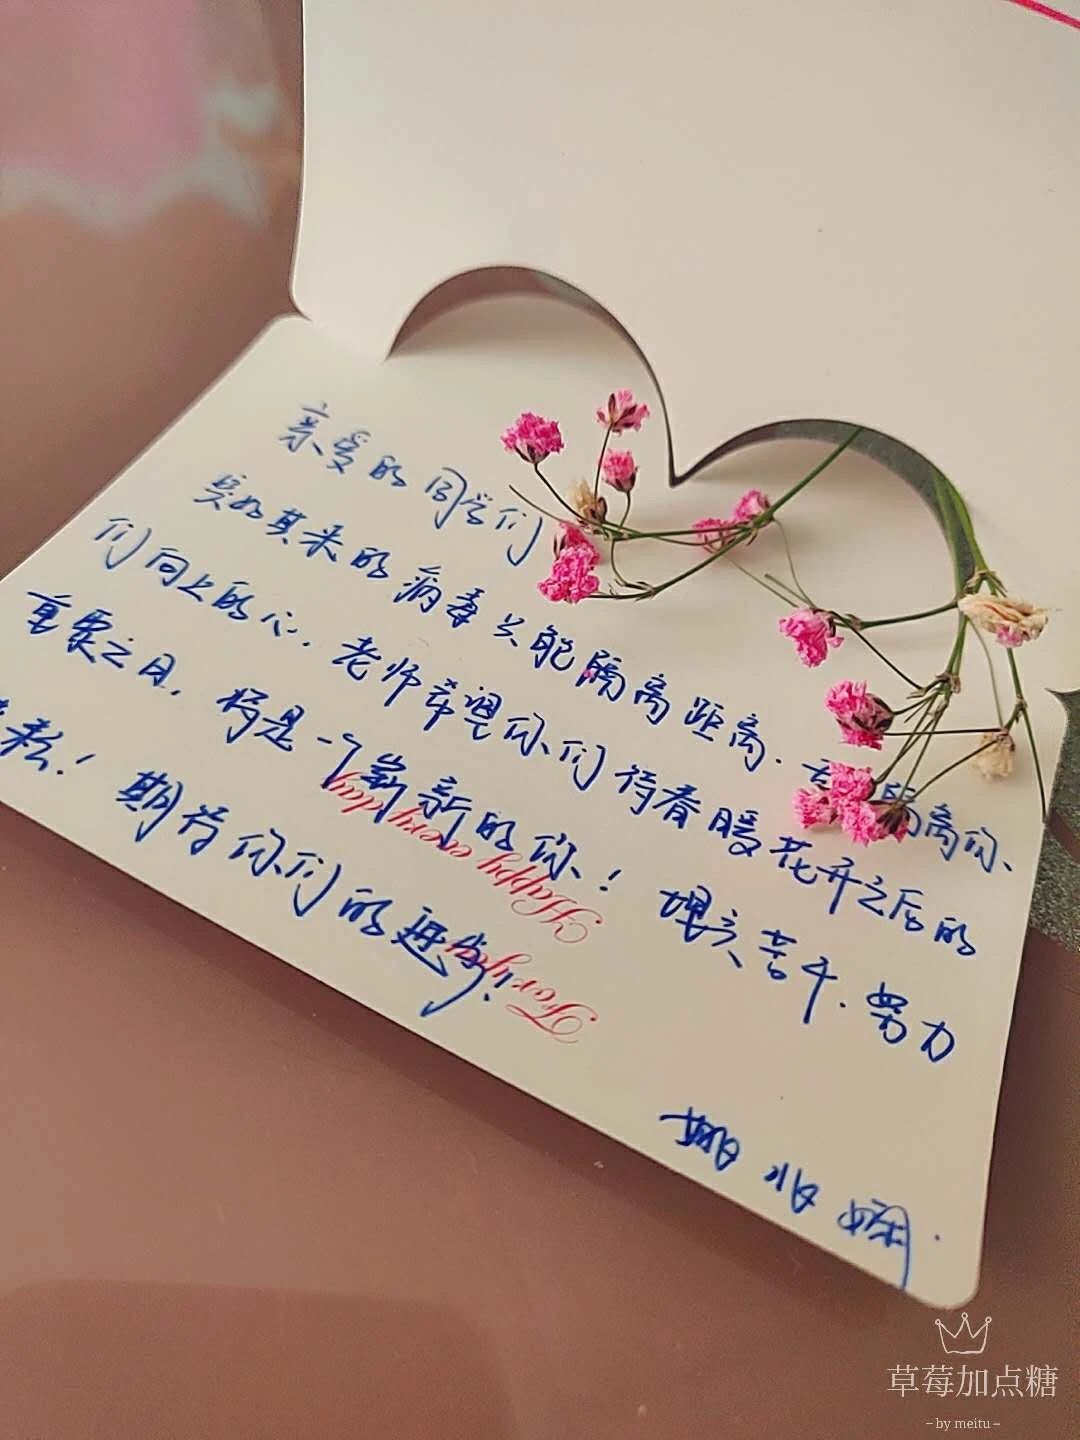 亲爱的同学们
突如其来的病毒只能隔离距离.  隔离你、
们向上的心,老师希望你们待春暖花开之后的
重要之日,将是一个崭新的你!埋头苦干.努力
耘!期待你们的进步!
Happy every day
For you
草莓加点糖
-by meitu-